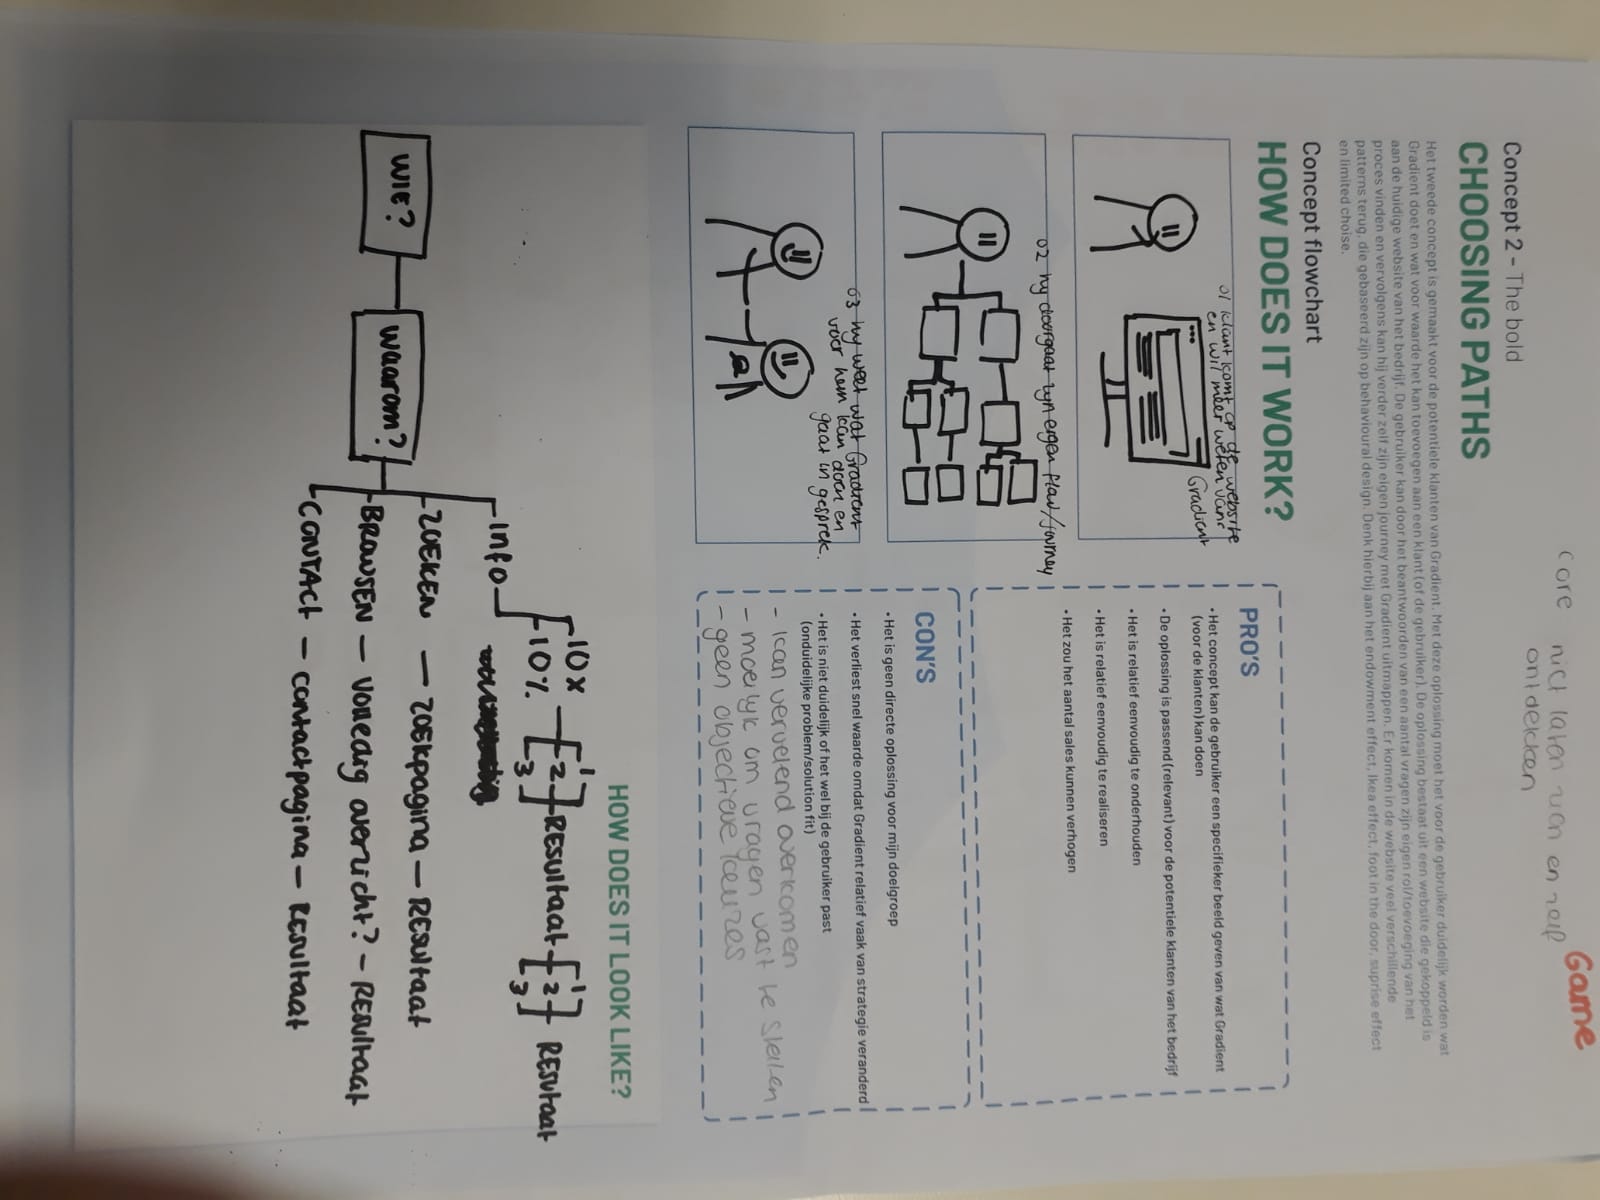 Game
core niet laten zien en zelf
ontdekken
Concept 2 - The bold
CHOOSING PATHS
Het tweede concept is gemaakt voor de potentiele klanten van Gradient. Met deze oplossing moet het voor de gebruiker duidelijk worden wat
Gradient doet en wat voor waarde het kan toevoegen aan een klant (of de gebruiker). De oplossing bestaat uit een website die gekoppeld is
aan de huidige website van het bedrijf. De gebruiker kan door het beantwoorden van een aantal vragen zijn eigen rol/toevoeging van het
proces vinden en vervolgens kan hij verder zelf zijn eigen journey met Gradient uitmappen. Er komen in de website veel verschillende
patterns terug, die gebaseerd zijn op behavioural design. Denk hierbij aan het endowment effect, Ikea effect, foot in the door, suprise effect
en limited choise.
Concept flowchart
HOW DOES IT WORK?
01 klant komt op de website
en wil meer weten van
Gradient
02 hij doorgaat zijn eigen flow/journey
03 hij weet wat Gradient
voor hem kan doen en
gaat in gesprek.
PRO'S
• Het concept kan de gebruiker een specifieker beeld geven van wat Gradient
(voor de klanten) kan doen
• De oplossing is passend (relevant) voor de potentiele klanten van het bedrijf
• Het is relatief eenvoudig te onderhouden
• Het is relatief eenvoudig te realiseren
• Het zou het aantal sales kunnen verhogen
CON'S
• Het is geen directe oplossing voor mijn doelgroep
• Het verliest snel waarde omdat Gradient relatief vaak van strategie veranderd
• Het is niet duidelijk of het wel bij de gebruiker past
(onduidelijke problem/solution fit)
- kan vervelend overkomen
- moeilijk om vragen vast te stellen
- geen objectieve keuzes
HOW DOES IT LOOK LIKE?
WIE?
waarom?
Info
10x
10%
1
2
3
RESULTAAT
1
2
3
RESULTAAT
ZOEKEN - ZOEKPAGINA - RESULTAAT
BROWSEN - VOLLEDIG OVERZICHT? - RESULTAAT
CONTACT - contactpagina - RESULTAAT